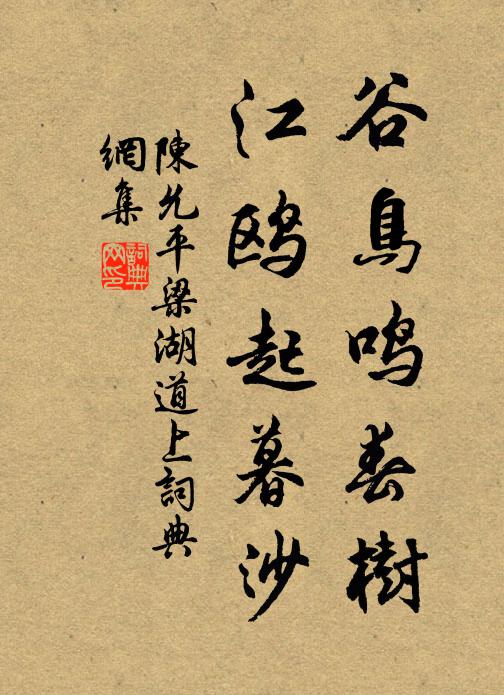 谷鳥鳴春樹
江鸥起暮沙
陳允平梁湖道上詞典
網集
詞典
网印